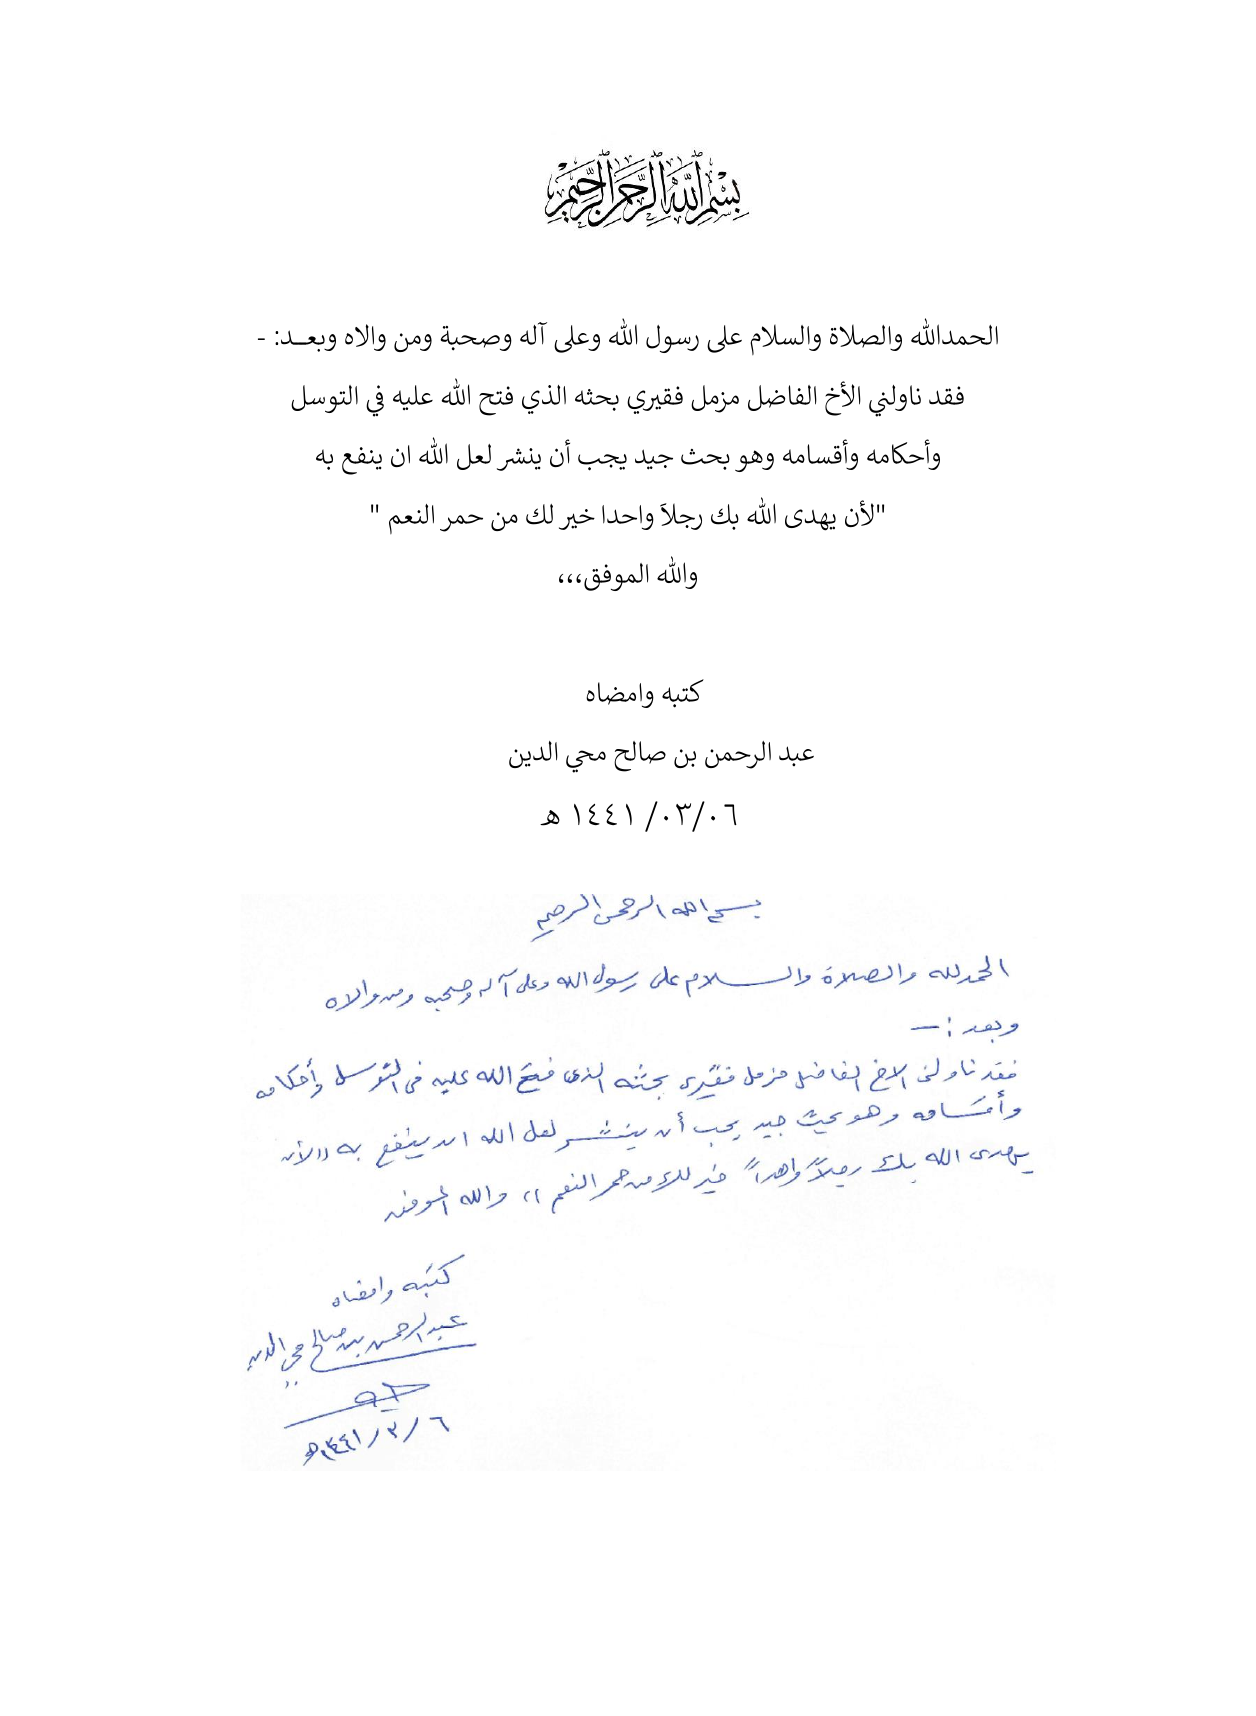 بِسْمِ اللَّهِ الرَّحْمَٰنِ الرَّحِيمِ
الحمدالله والصلاة والسلام على رسول الله وعلى آله وصحبة ومن والاه وبعــد: -
فقد ناولني الأخ الفاضل مزمل فقيري بحثه الذي فتح الله عليه في التوسل
وأحكامه وأقسامه وهو بحث جيد يجب أن ينشر لعل الله ان ينفع به
"لأن يهدى الله بك رجلاَ واحدا خير لك من حمر النعم "
والله الموفق،،،
كتبه وامضاه
عبد الرحمن بن صالح محي الدين
٠٦/٠٣/ ١٤٤١ ه
بسم الله الرحمن الرحيم
الحمد لله والصلاة والسلام على رسول الله وعلى آله وصحبه ومن والاه
وبعد :—
فقد ناولني الاخ الفاضل مزمل فقيري بحثه الذى فتح الله عليه فى التوسل وأحكامه
وأقسامه وهو بحث جيد يجب أن ينشر لعل الله ان ينفع به "لأن
يهدى الله بك رجلاً واحداً خير لك من حمر النعم" والله الموفق
كتبه وامضاه
عبد الرحمن بن صالح محي الدين
٦/٣/١٤٤١هـ